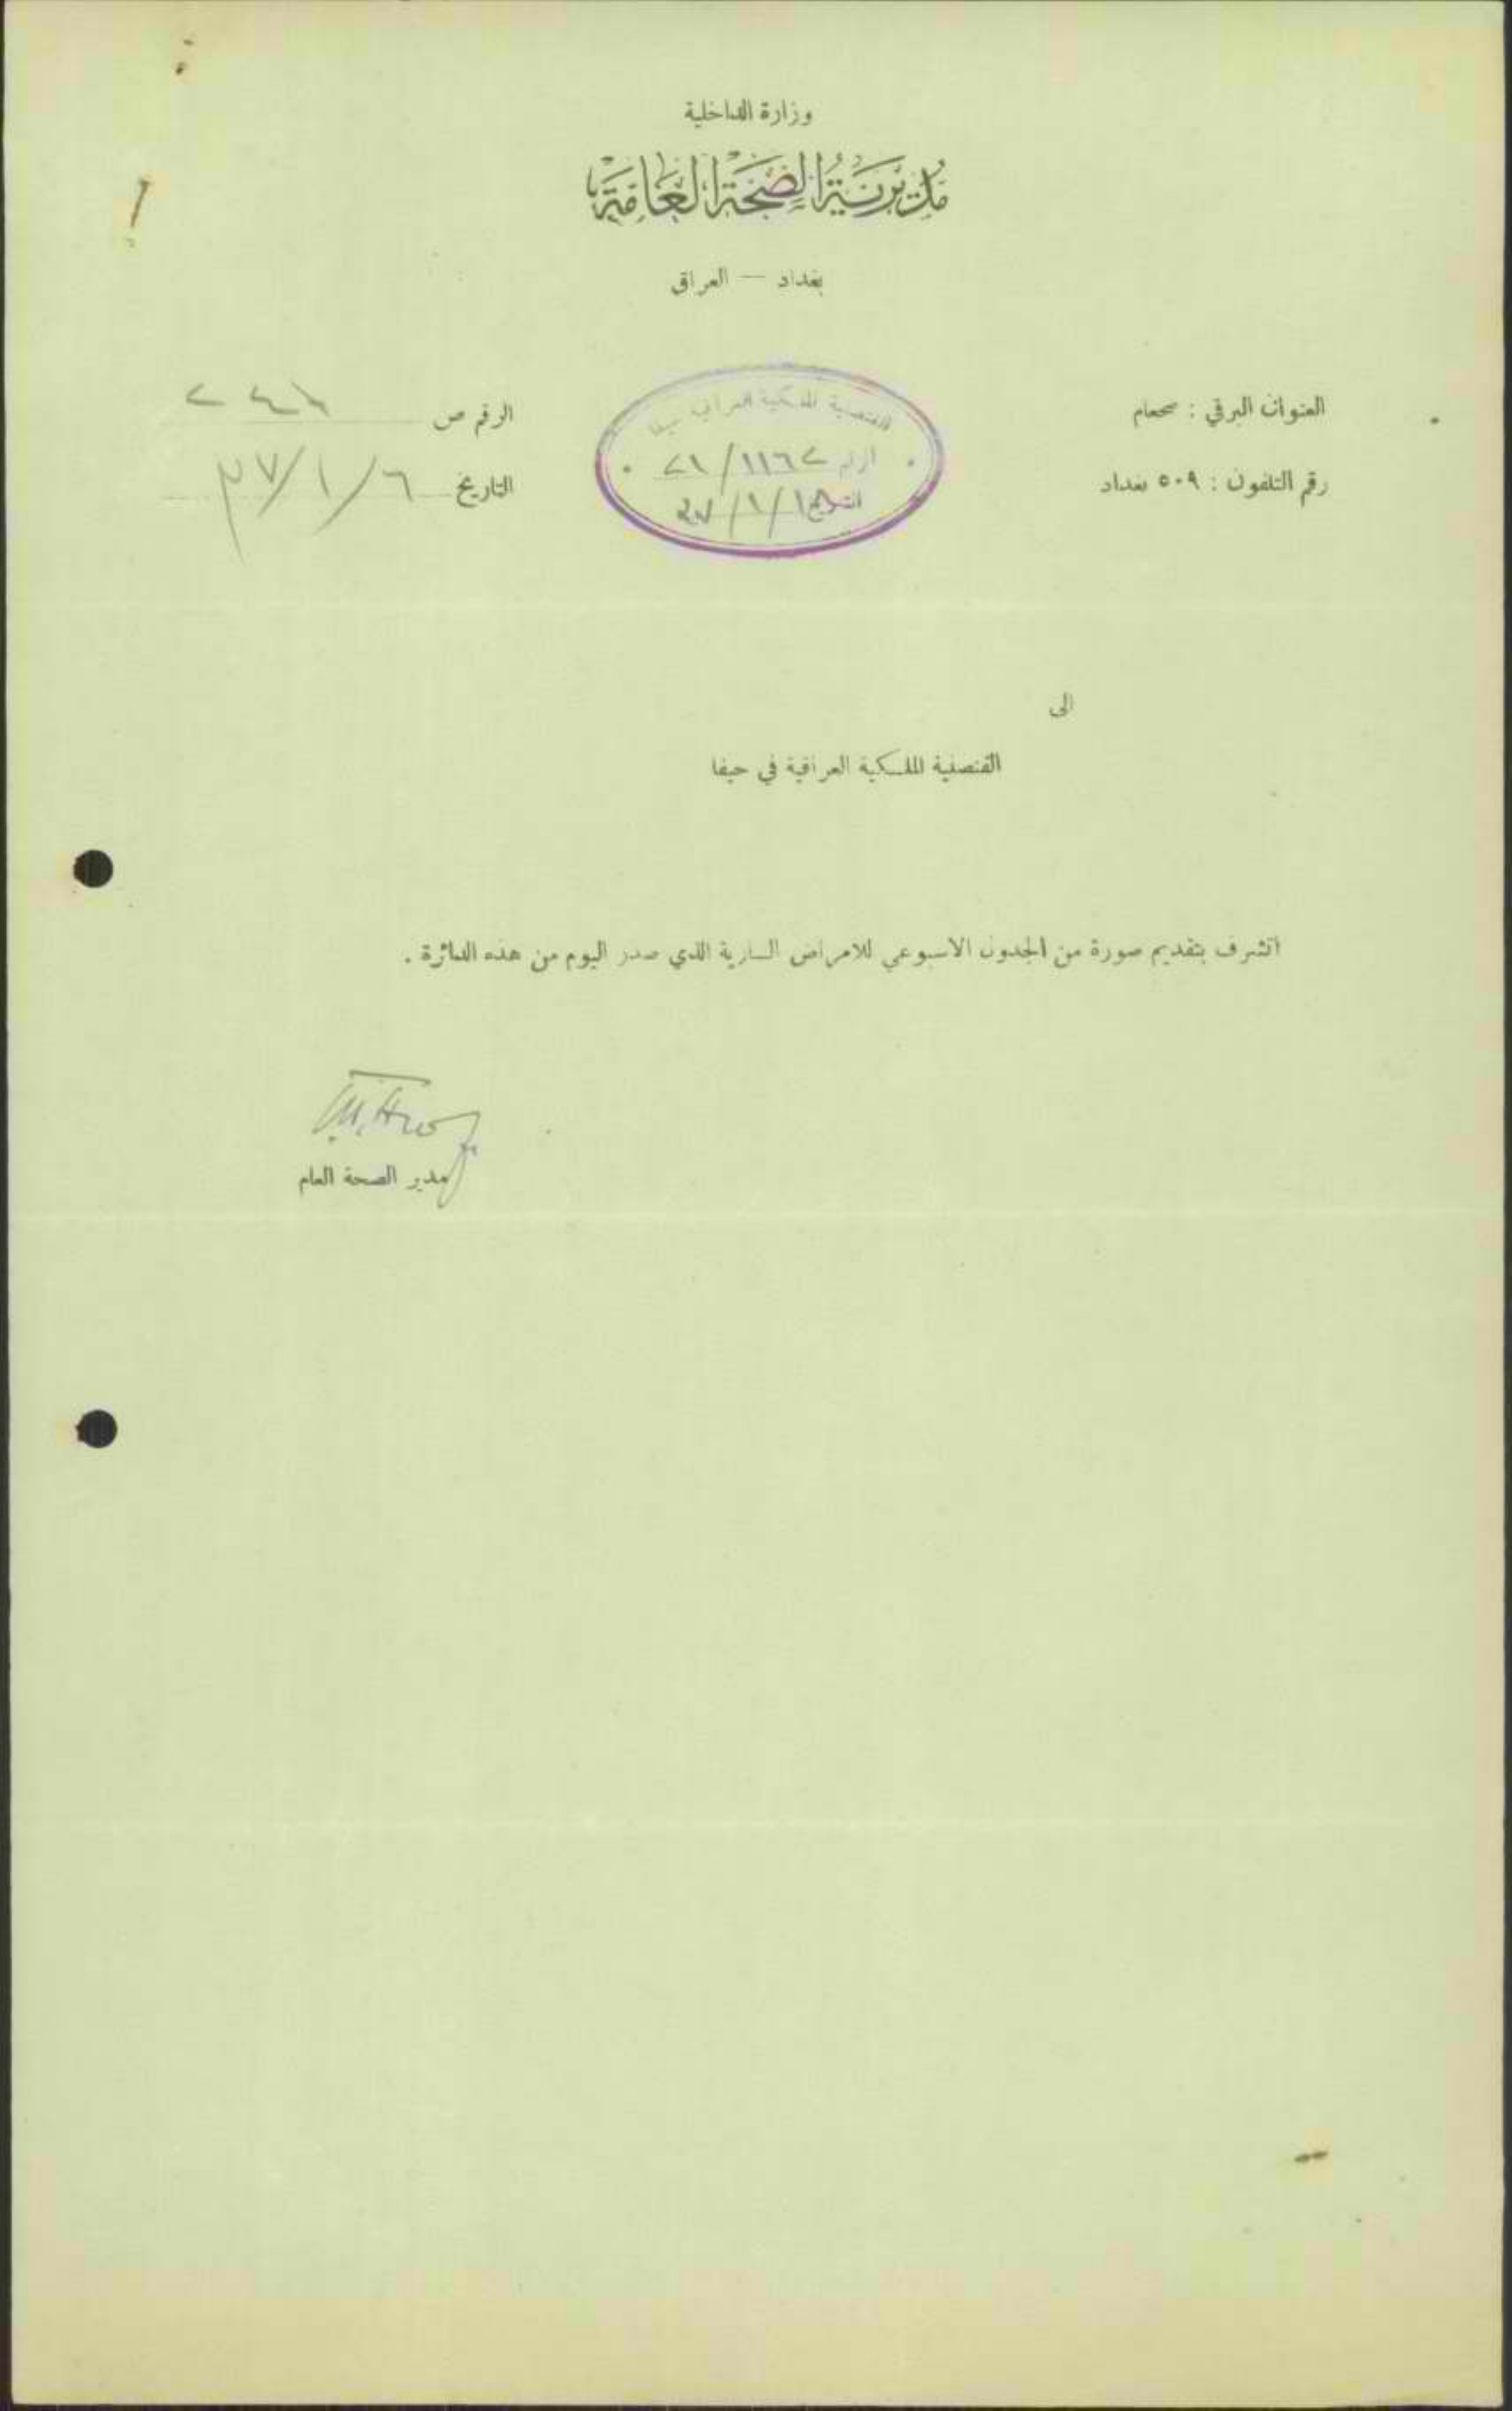 وزارة الداخلية
مديرية الصحة العامة
بغداد — العراق
العنوان البرقي : صحعام
الرقم ص
رقم التلفون : ٥٠٩ بغداد
التاريخ ٦/١/٣٧
القنصلية الملكية العراقية حيفا
الرقم ٢١/١١٦٢
التاريخ
الى
القنصلية الملكية العراقية في حيفا
اتشرف بتقديم صورة من الجدول الاسبوعي للامراض السارية الذي صدر اليوم من هذه الدائرة .
مدير الصحة العام